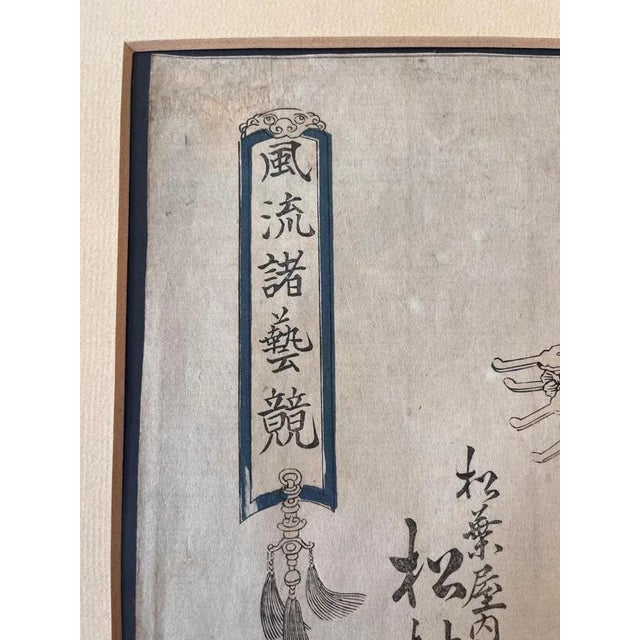 松葉屋内
松
風流諸藝競